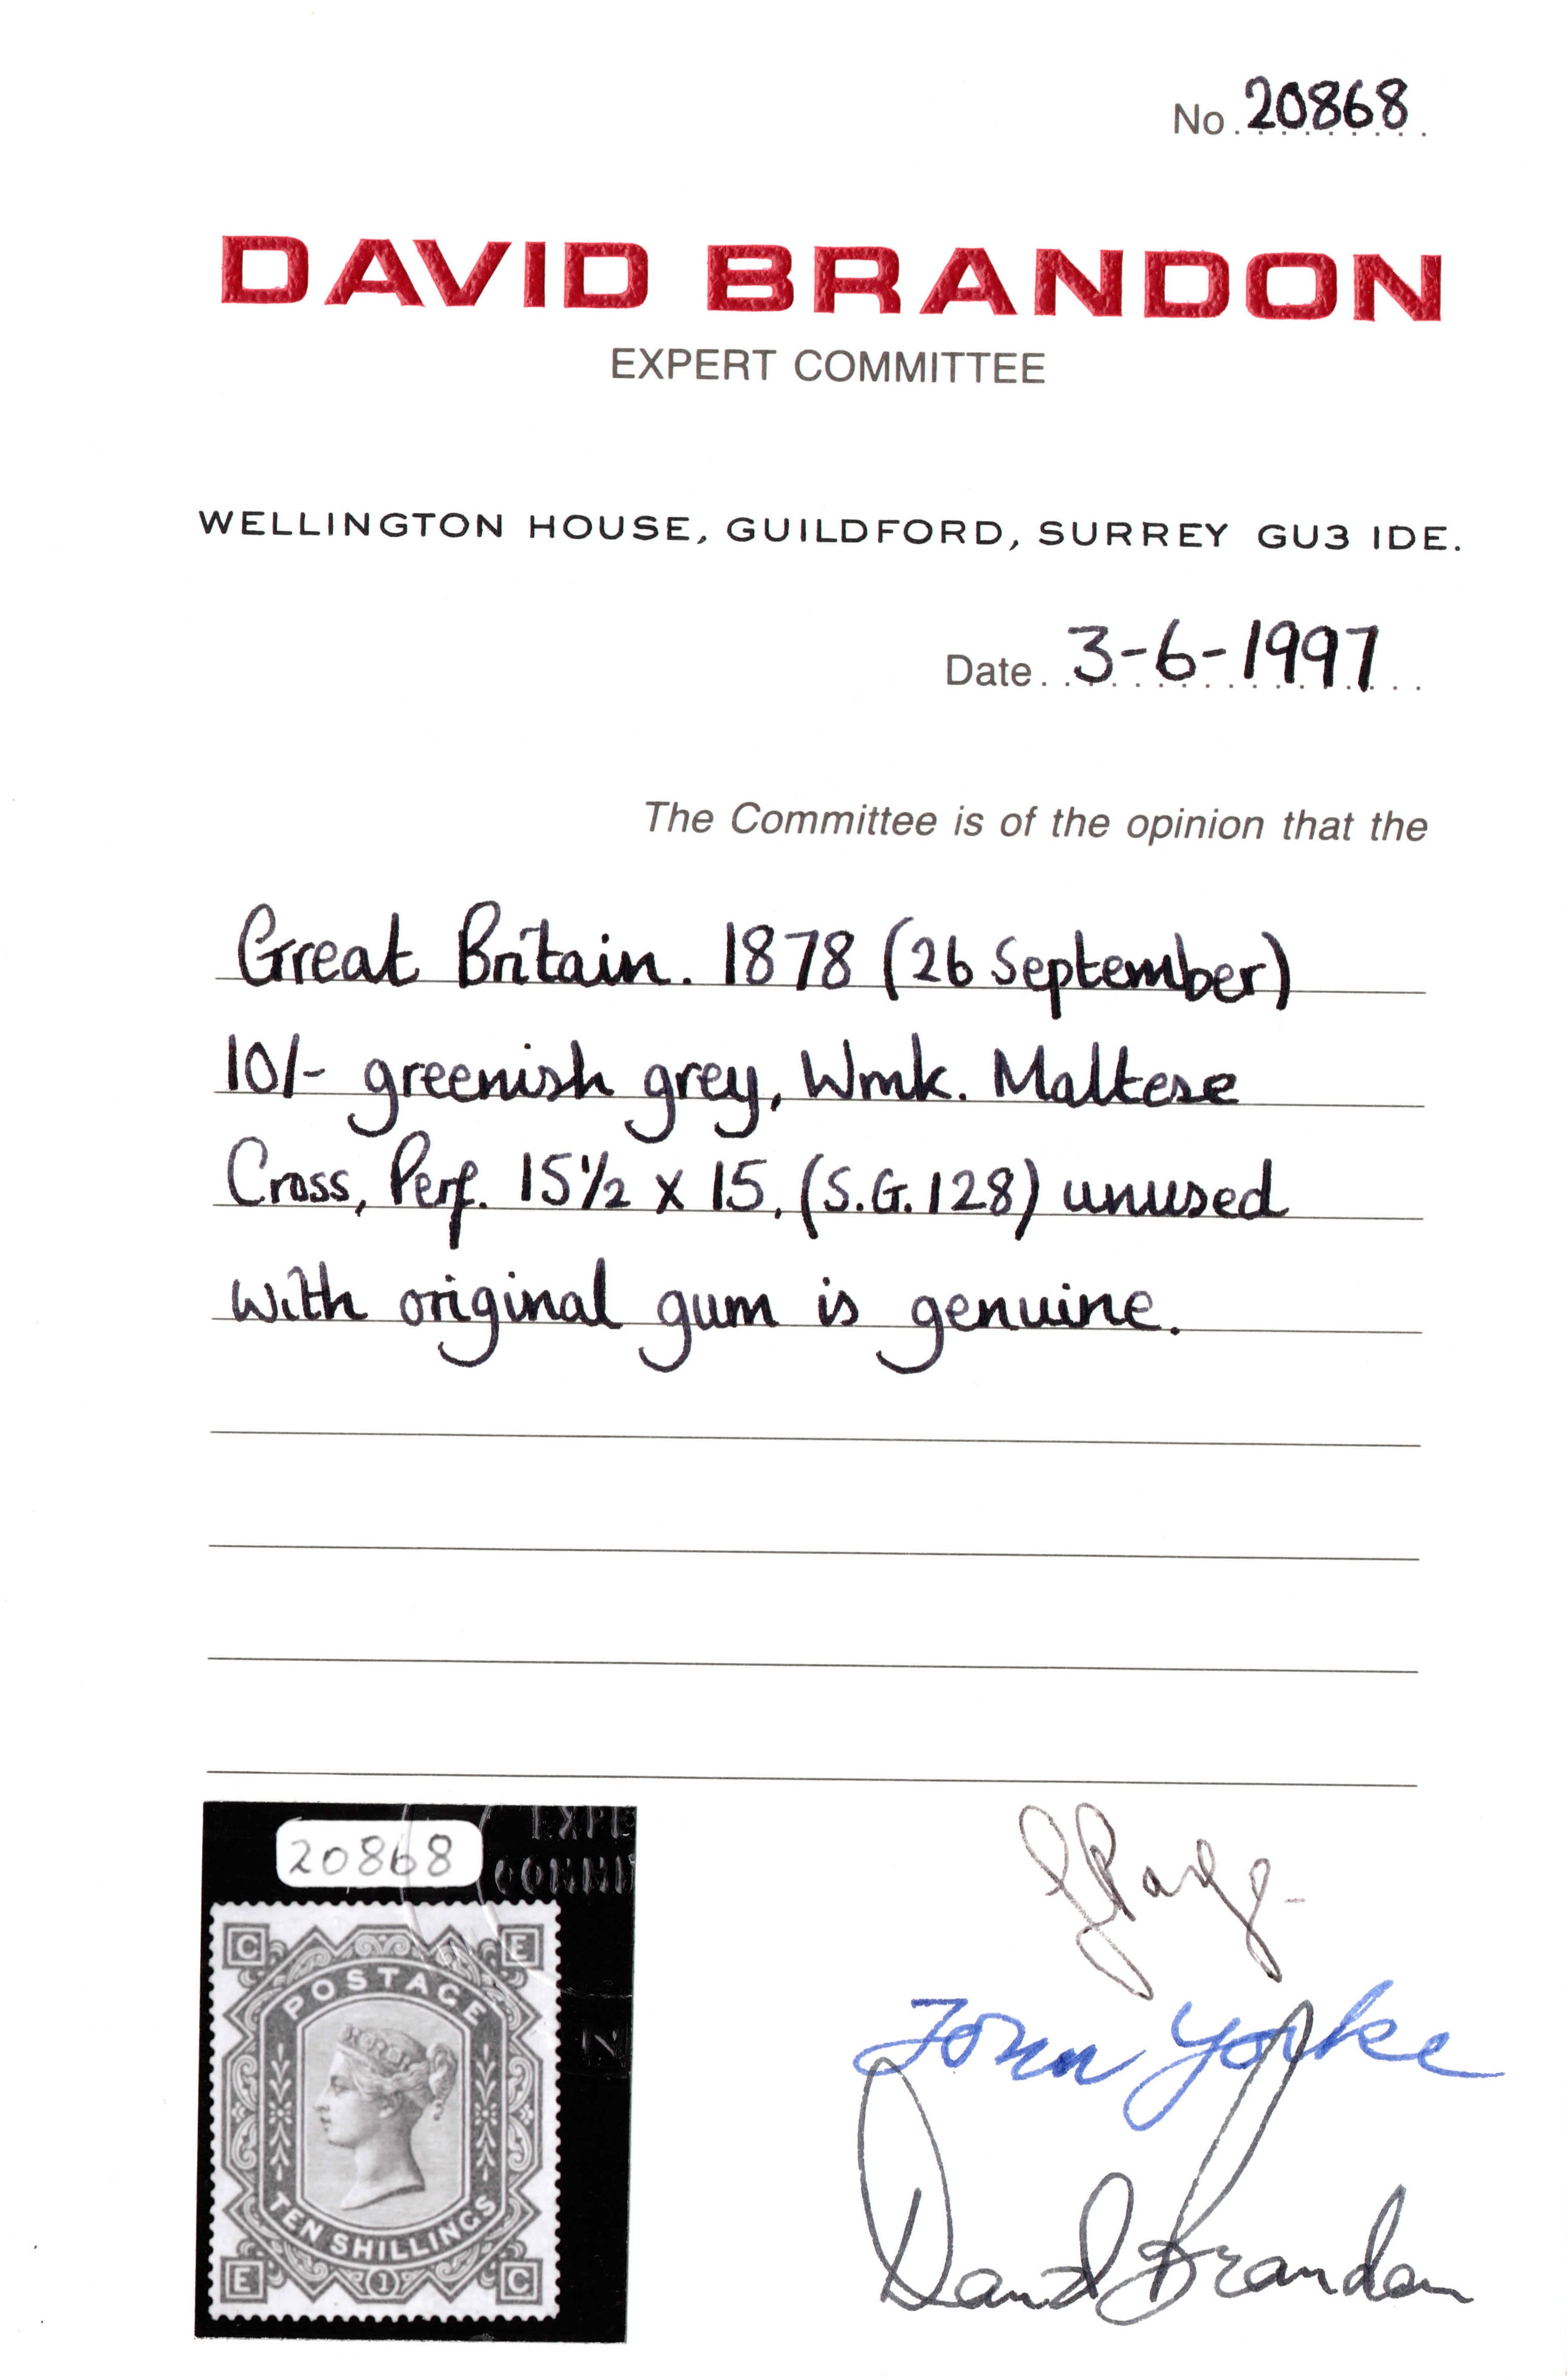 No. 20868
DAVID BRANDON
EXPERT COMMITTEE
WELLINGTON HOUSE, GUILDFORD, SURREY GU3 IDE.
Date. 3-6-1997
The Committee is of the opinion that the
Great Britain. 1878 (26 September)
10/- greenish grey, Wmk. Maltese
Cross, Perf. 15½ x 15, (S.G. 128) unused
with original gum is genuine.
20868
C E
POSTAGE
TEN SHILLINGS
E 1 C
John Yorke
David Brandon